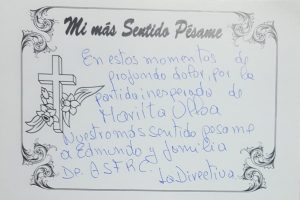 Mi más Sentido Pésame
En estos momentos de
profundo dolor por la
partida inesperada de
Marilta Ulloa
Nuestro más sentido pesame
a Edmundo y familia
De ASFRC.
La Directiva